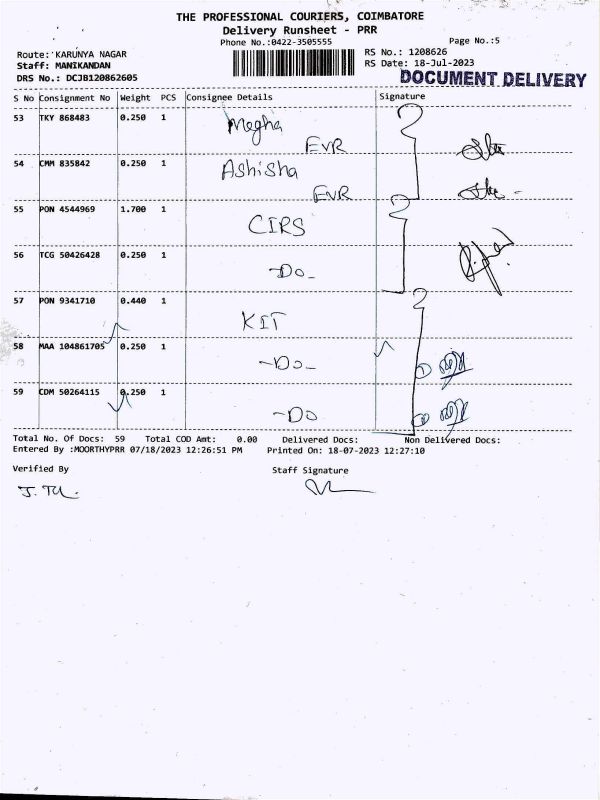 THE PROFESSIONAL COURIERS, COIMBATORE
Delivery Runsheet - PRR
Phone No.:0422-3505555
Page No.:5
Route: KARUNYA NAGAR
RS No.: 1208626
Staff: MANIKANDAN
RS Date: 18-Jul-2023
DRS No.: DCJB120862605
DOCUMENT DELIVERY
S No Consignment No Weight PCS Consignee Details Signature
53 TKY 868483 0.250 1 Megha
EVR
54 CMM 835842 0.250 1 Ashisha
EVR
55 PON 4544969 1.700 1 CIRS
56 TCG 50426428 0.250 1 -Do-
57 PON 9341710 0.440 1 KIT
58 MAA 104861705 0.250 1 -Do-
59 CDM 50264115 0.250 1 -Do
Total No. Of Docs: 59 Total COD Amt: 0.00 Delivered Docs: Non Delivered Docs:
Entered By :MOORTHYPRR 07/18/2023 12:26:51 PM Printed On: 18-07-2023 12:27:10
Verified By Staff Signature